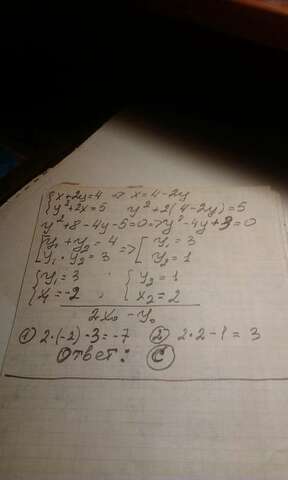 {x+2y=4 => x=4-2y
{y²+2x=5 y²+2(4-2y)=5
y²+8-4y-5=0=>y²-4y+3=0
[y₁+y₂=4 => [y₁=3
[y₁·y₂=3 [y₂=1
{y₁=3 {y₂=1
{x₁=-2, {x₂=2
2x₀-y₀
① 2·(-2)-3=-7 ② 2·2-1=3
Ответ: C